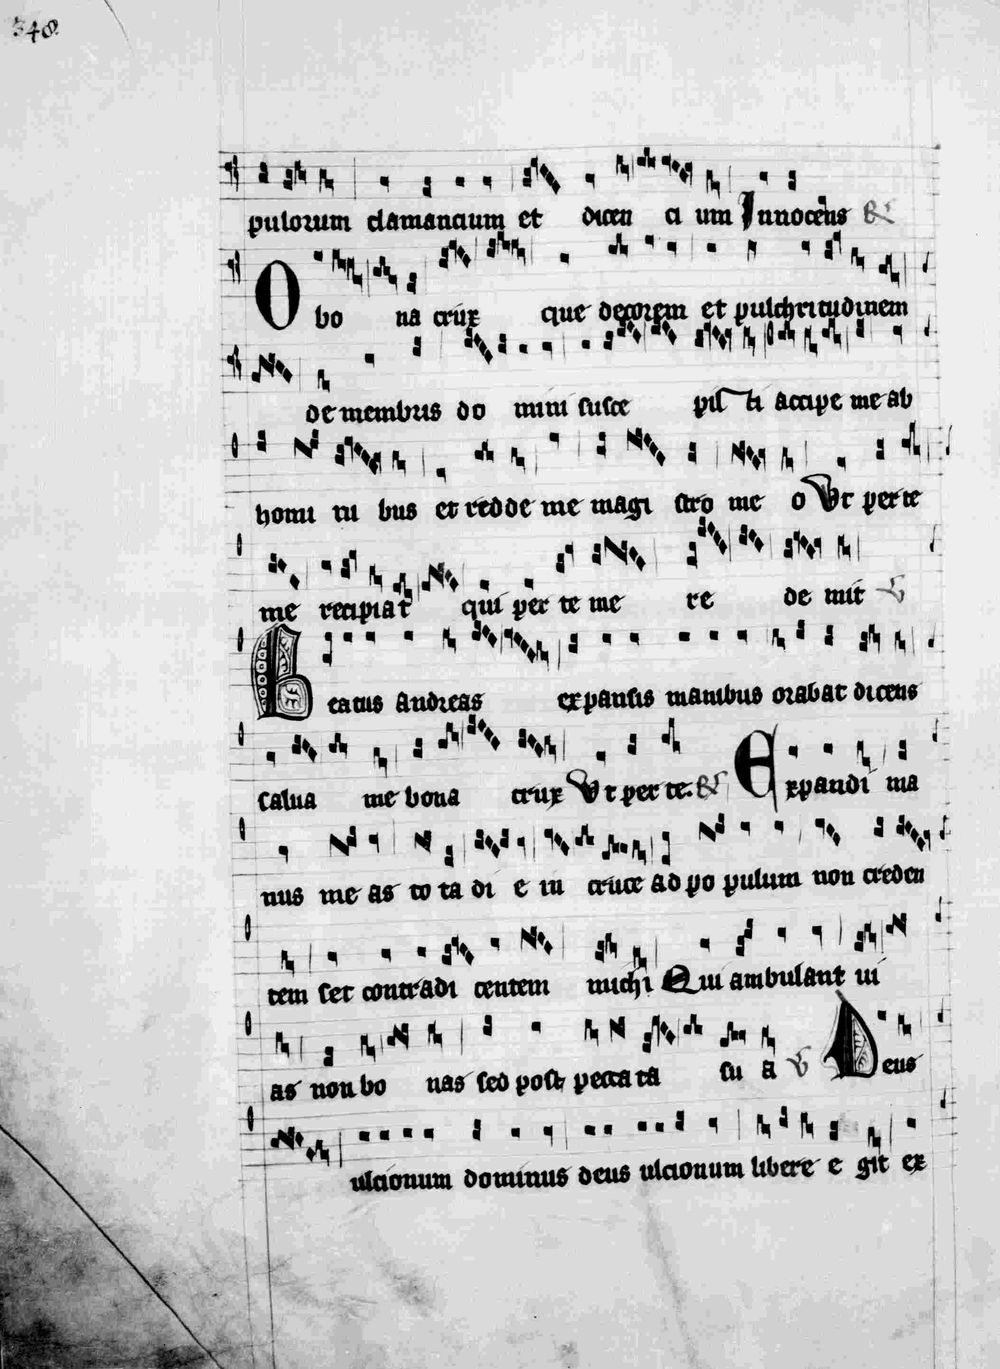 348.
pulorum clamancium et dicen ci um Innocens &
O bo na crux que decorem et pulchritudinem
de membris do mini susce pis ti accipe me ab
homi ni bus et redde me magi stro me o Vt per te
me recipiat qui per te me re de mit V
Beatus andreas expansis manibus orabat dicens
salua me bona crux Vt per te. & Expandi ma
nus me as to ta di e in cruce ad po pulum non creden
tem set contradi centem michi Qui ambulant ui
as non bo nas sed post peccata ta su a V Deus
ulcionum dominus deus ulcionum libere e git ex